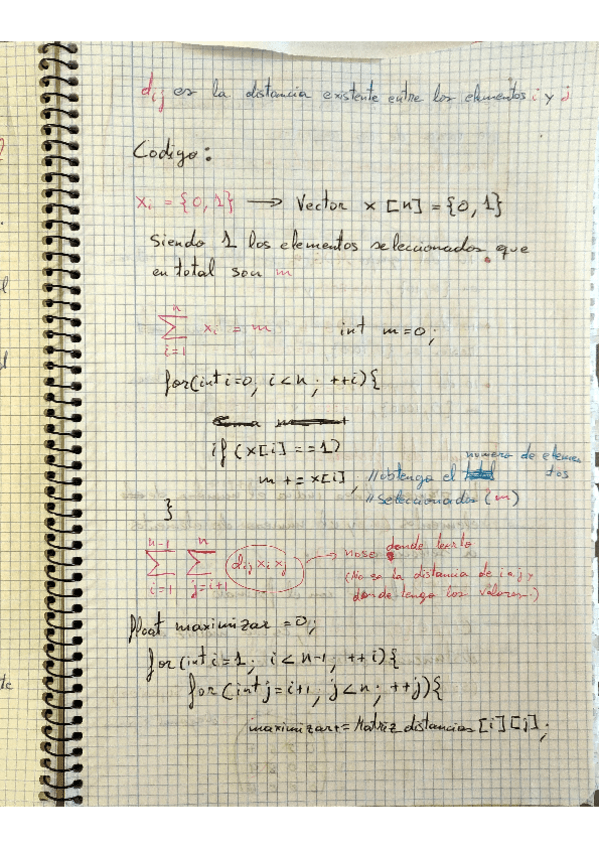 dij es la distancia existente entre los elementos i y j
Codigo:
xi = {0,1} → Vector x [n] = {0,1}
Siendo 1 los elementos seleccionados que
en total son m
n
∑ xi = m int m=0;
i=1
for(int i=0; i<n; ++i){
if (x[i] ==1)
numero de elemen
m += x[i]; //obtengo el tos
//seleccionados (m)
}
n-1 n
∑ ∑ dij xi xj → nose donde leerlo
i=1 j=i+1 (No es la distancia de i a j y
donde tengo los valores.)
float maximizar =0;
for(int i=1; i<n-1; ++i){
for(int j=i+1; j<n; ++j){
maximizar+= Matriz distancias [i][j];